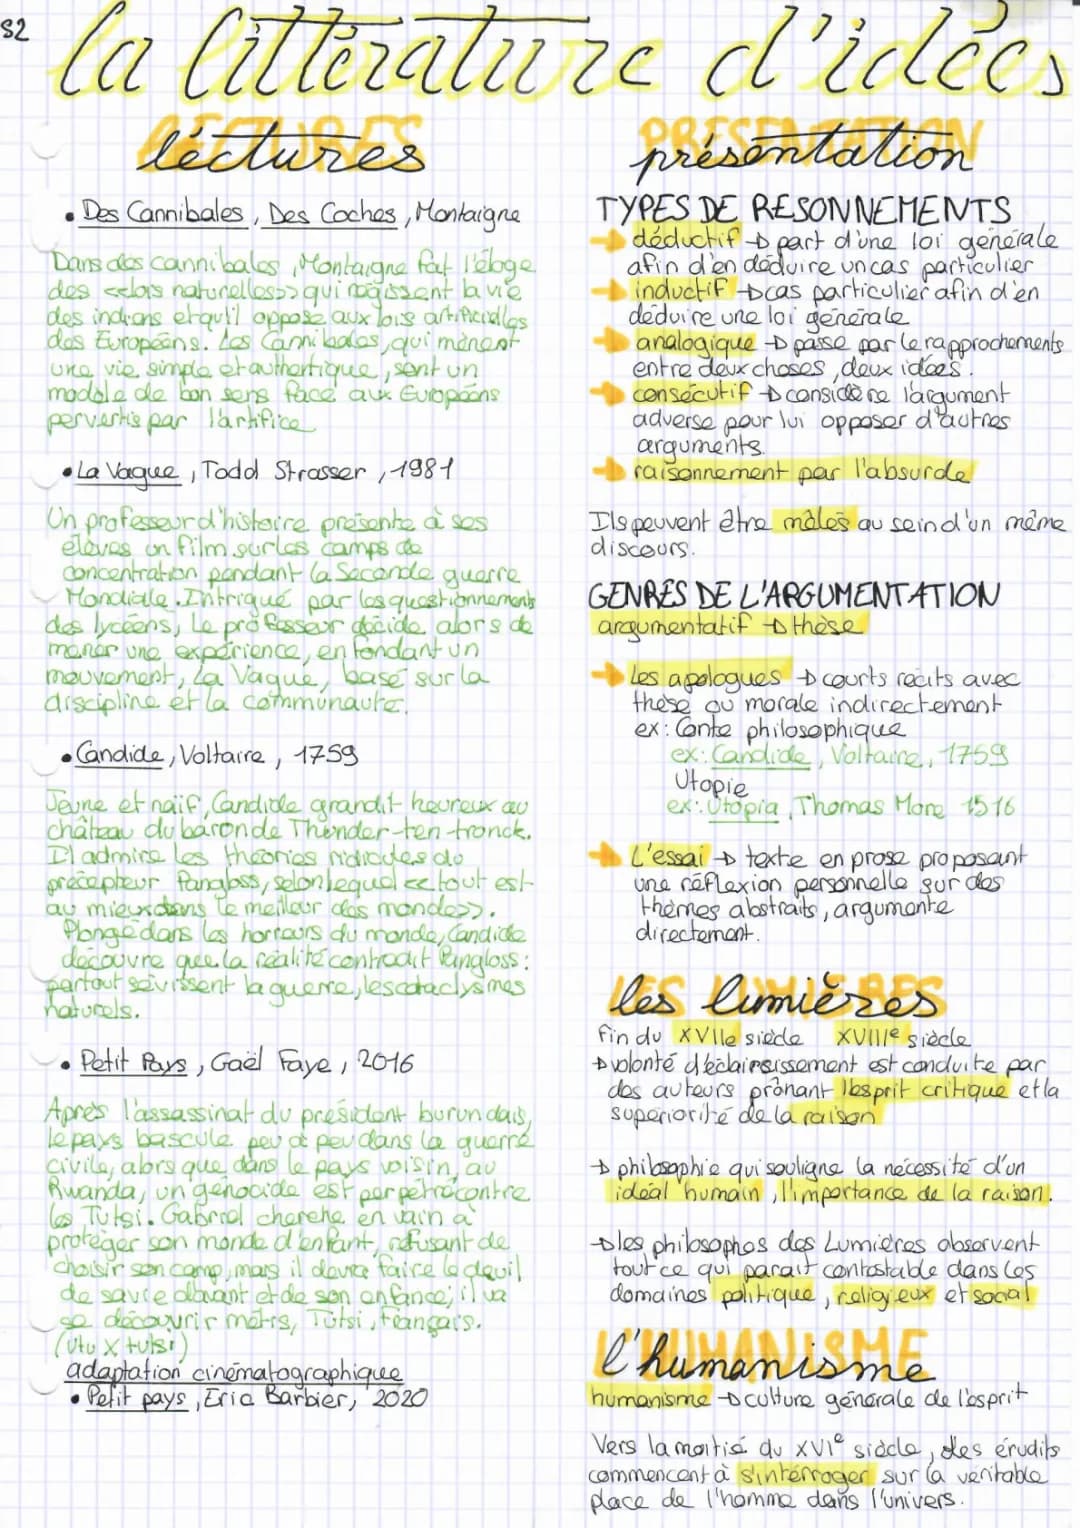 S2
la littérature d'idées
léctures
• Des Cannibales, Des Coches, Montaigne
Dans des cannibales, Montaigne fat l'éloge
des <<lois naturelles>> qui régissent la vie
des indiens et qu'il oppose aux lois artificielles
des Européens. Les Cannibales, qui mènent
une vie simple et authentique, sont un
modèle de bon sens face aux Européens
pervertis par l'artifice
• La Vague, Todd Strasser, 1981
Un professeur d'histoire présente à ses
élèves un film sur les camps de
concentration pendant la Seconde guerre
Mondiale. Intrigué par les questionnements
des lycéens, Le professeur décide alors de
mener une expérience, en fondant un
mouvement, La Vague, basé sur la
discipline et la communauté.
• Candide, Voltaire, 1759
Jeune et naïf, Candide grandit heureux au
château du baron de Thunder-ten-tronck.
Il admire les théories ridicules du
précepteur Pangloss, selon lequel <<tout est
au mieux dans le meilleur des mondes>>.
Plongé dans les horreurs du monde, Candide
découvre que la réalité contredit Pangloss:
partout sévissent la guerre, les cataclysmes
naturels.
• Petit Pays, Gaël Faye, 2016
Après l'assassinat du président burundais,
le pays bascule peu à peu dans la guerre
civile, alors que, dans le pays voisin, au
Rwanda, un génocide est perpétré contre
les Tutsi. Gabriel cherche en vain à
protéger son monde d'enfant, refusant de
choisir son camp, mais il devra faire le deuil
de sa vie d'avant et de son enfance; il va
se découvrir métis, Tutsi, Français.
(Utu X tutsi)
adaptation cinématographique
• Petit pays, Eric Barbier, 2020
présentation
TYPES DE RESONNEMENTS
déductif → part d'une loi générale
afin d'en déduire un cas particulier
inductif → cas particulier afin d'en
déduire une loi générale
analogique → passe par le rapprochements
entre deux choses, deux idées.
consécutif → considère l'argument
adverse pour lui opposer d'autres
arguments.
raisonnement par l'absurde
Ils peuvent être mâlés au sein d'un même
discours.
GENRES DE L'ARGUMENTATION
argumentatif → thèse
Les apologues → courts récits avec
thèse ou morale indirectement
ex: Conte philosophique
ex: Candide, Voltaire, 1759
Utopie
ex: Utopia, Thomas More 1516
L'essai → texte en prose proposant
une réflexion personnelle sur des
thèmes abstraits, argumente
directement.
les lumières
fin du XVIIe siècle XVIIIe siècle
→ volonté d'éclaircissement est conduite par
des auteurs prônant l'esprit critique et la
supériorité de la raison
→ philosophie qui souligne la nécessité d'un
idéal humain, l'importance de la raison.
→ les philosophes des Lumières observent
tout ce qui paraît contestable dans les
domaines politique, religieux et social
l'humanisme
humanisme → culture générale de l'esprit
Vers la moitié du XVIe siècle, des érudits
commencent à s'intérroger sur la véritable
place de l'homme dans l'univers.